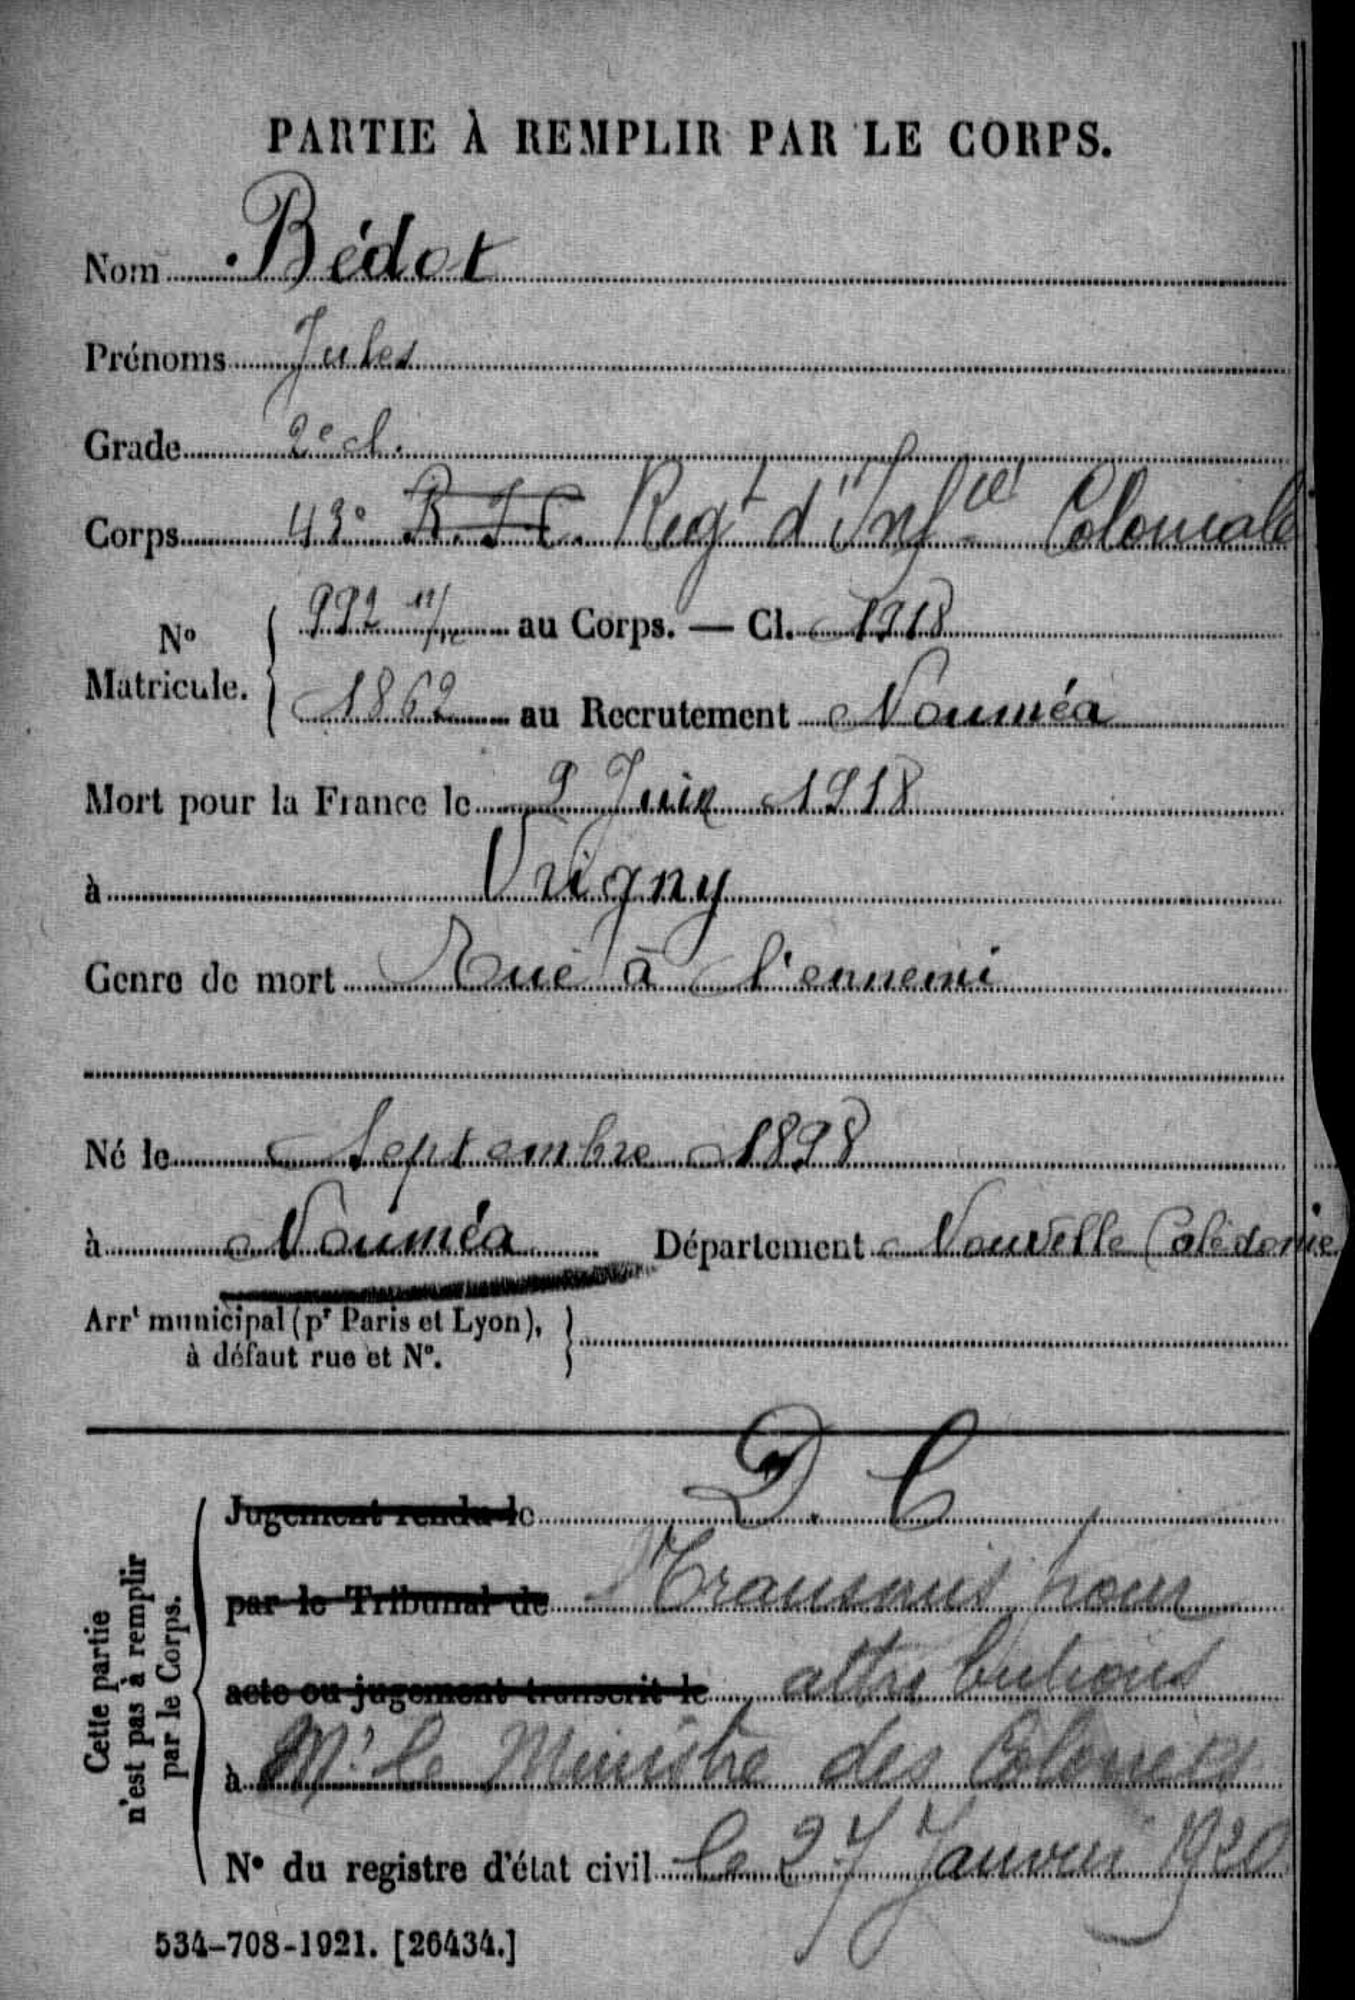 PARTIE À REMPLIR PAR LE CORPS.
Nom Bédot
Prénoms Jules
Grade 2e cl.
Corps 43e R.I.C. Regt d'Infie Coloniale
No Matricule. { 992 11/ au Corps. — Cl. 1918
1862 au Recrutement Nouméa
Mort pour la France le 9 Juin 1918
à Vrigny
Genre de mort Tué à l'ennemi
Né le Septembre 1898
à Nouméa Département Nouvelle Calédonie
Arrt municipal (pr Paris et Lyon),
à défaut rue et No. }
D. C
Cette partie
n'est pas à remplir
par le Corps.
Jugement rendu le
par le Tribunal de Transmis pour
acte ou jugement transcrit le attributions
à Mr le Ministre des Colonies
No du registre d'état civil le 27 Janvier 1920
534-708-1921. [26434.]